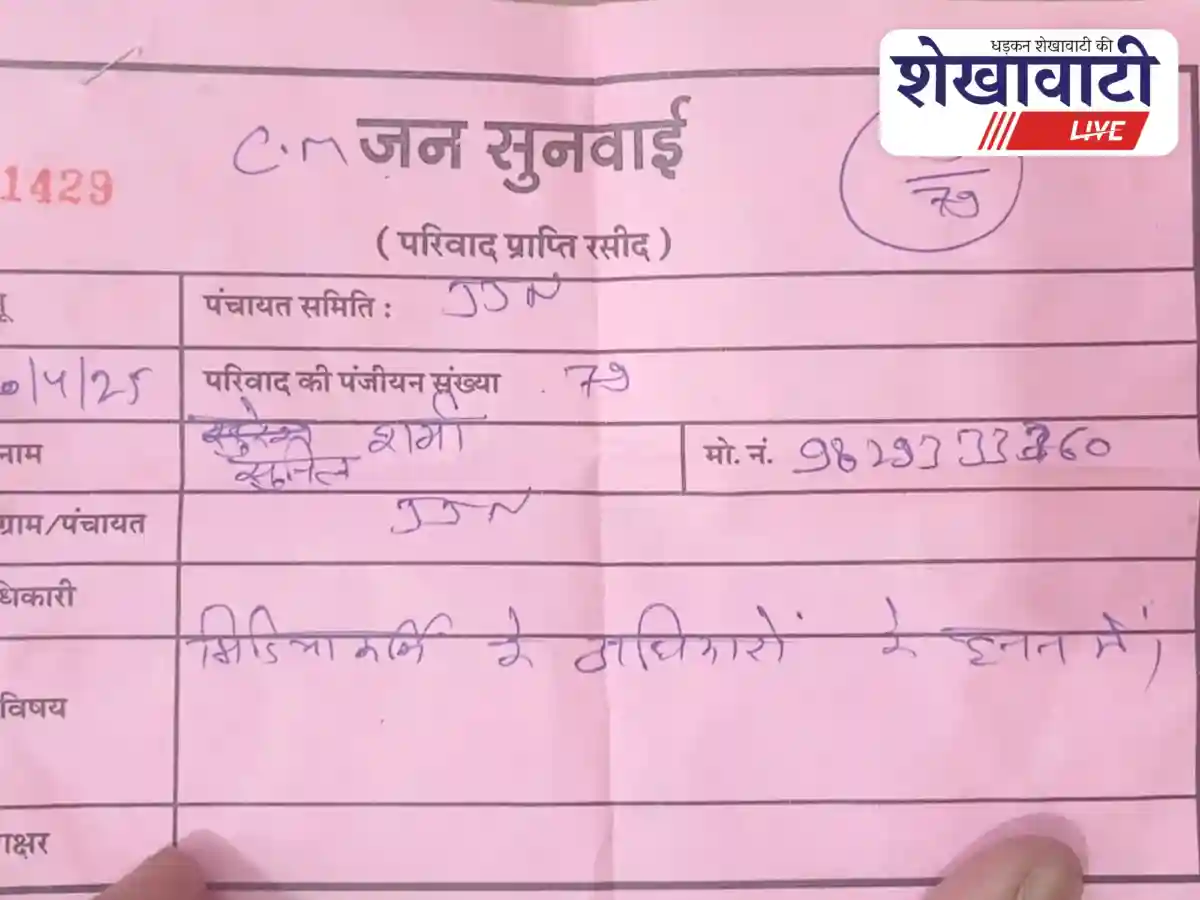 धड़कन शेखावाटी की
शेखावाटी
LIVE
C.M जन सुनवाई
1429
79
( परिवाद प्राप्ति रसीद )
पंचायत समिति : JJN
/4/25 परिवाद की पंजीयन संख्या . 79
नाम शर्मा मो. नं.
सुनिल
ग्राम/पंचायत JJN
धिकारी
मिडिया कर्मि के अधिकारों के हनन में।
विषय
ाक्षर